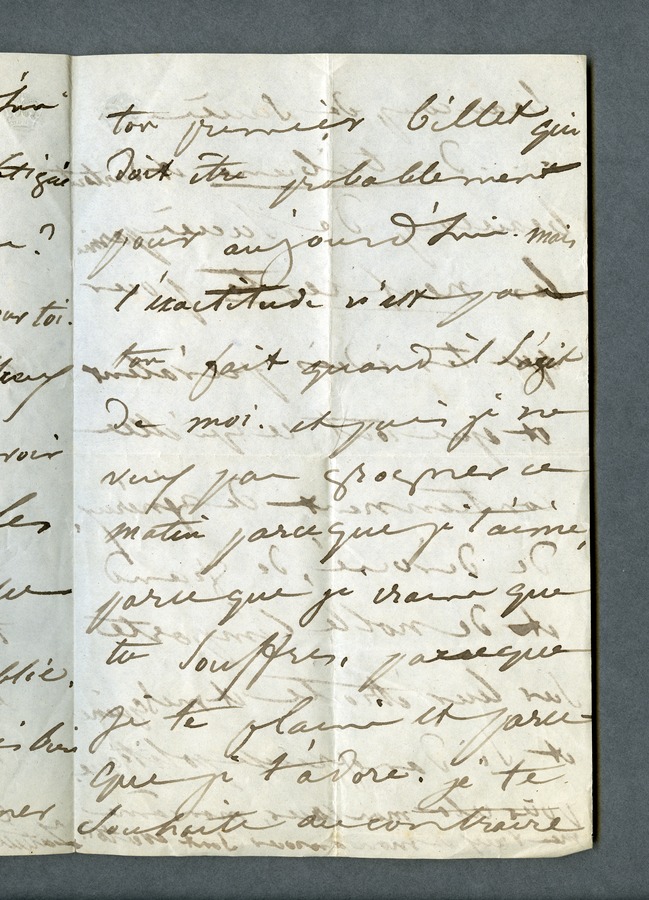 ton premier billet qui
doit être probablement
pour aujourd'hui. mais
l'éxactitude n'est pas
ton fait quand il s'agit
de moi. et puis je ne
veux pas grogner ce
matin parceque je t'aime,
parceque je crains que
tu souffres, parceque
je te plains et parce
que je t'adore. je te
souhaite au contraire
ar toi.
voir
les